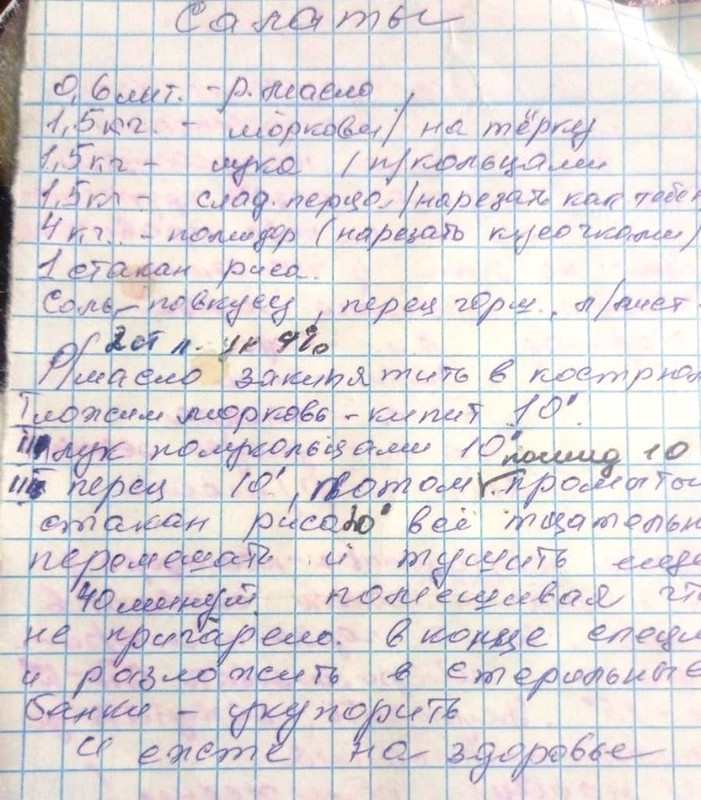 Салаты
0,6 лит. - р. масло
1,5 кг. - моркови / на тёрку
1,5 кг - лука / п/кольцами
1,5 кг - слад. перца / нарезать как
4 кг. - помидор (нарезать кусочками)
1 стакан риса.
Соль - повкусу, перец горш., л/лист
2 ст л. ук 9%
Р/масло закипятить в
I ложим морковь - кипит 10'
II лук полукольцами 10' помид 10
III перец 10', потом промытый
стакан риса 10' всё тщательн
перемешать и тушить
40 минут помешивая чт
не пригарело. в конце
и разложить в стерильные
банки - укупорить
И ежте на здоровье